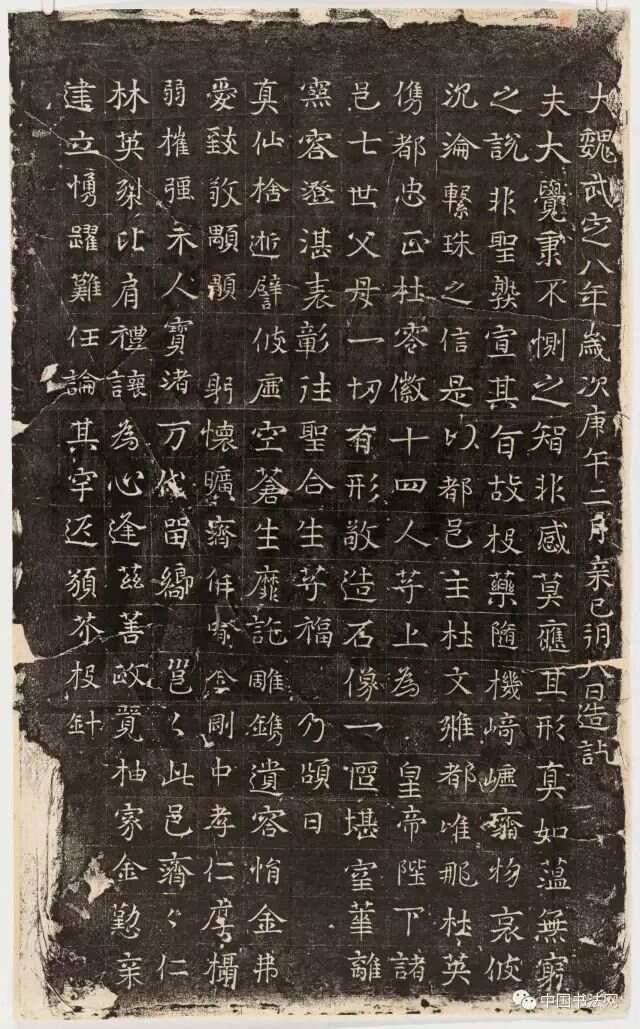 大魏武定八年歲次庚午二月亲巳朔八日造訖
夫大覺秉不惻之智非感莫應其形真如蕰無窮
之說非聖孰宣其旨故投藥隨機﨑嶇齎物哀彼
沉淪繫珠之信是以都邑主杜文雅都唯那杜英
儁都忠正杜容徽十四人等上為 皇帝陛下諸
邑七世父母一切有形敬造石像一區堪室華離
窯容澄湛表彰往聖合生等福 乃頌曰
真仙捨逝譬彼虛空蒼生靡託雕鐫遺容惰金弗
愛致敬顒顒 躬懷曠齊 金剛中孝仁
弱摧彊示人寶渚万代留鄉邕々此邑濟々仁
林英梨比肩禮讓為心逢茲善政覽柚家金懃亲
建立慂躍難任論其宰返芥投針
中国书法网